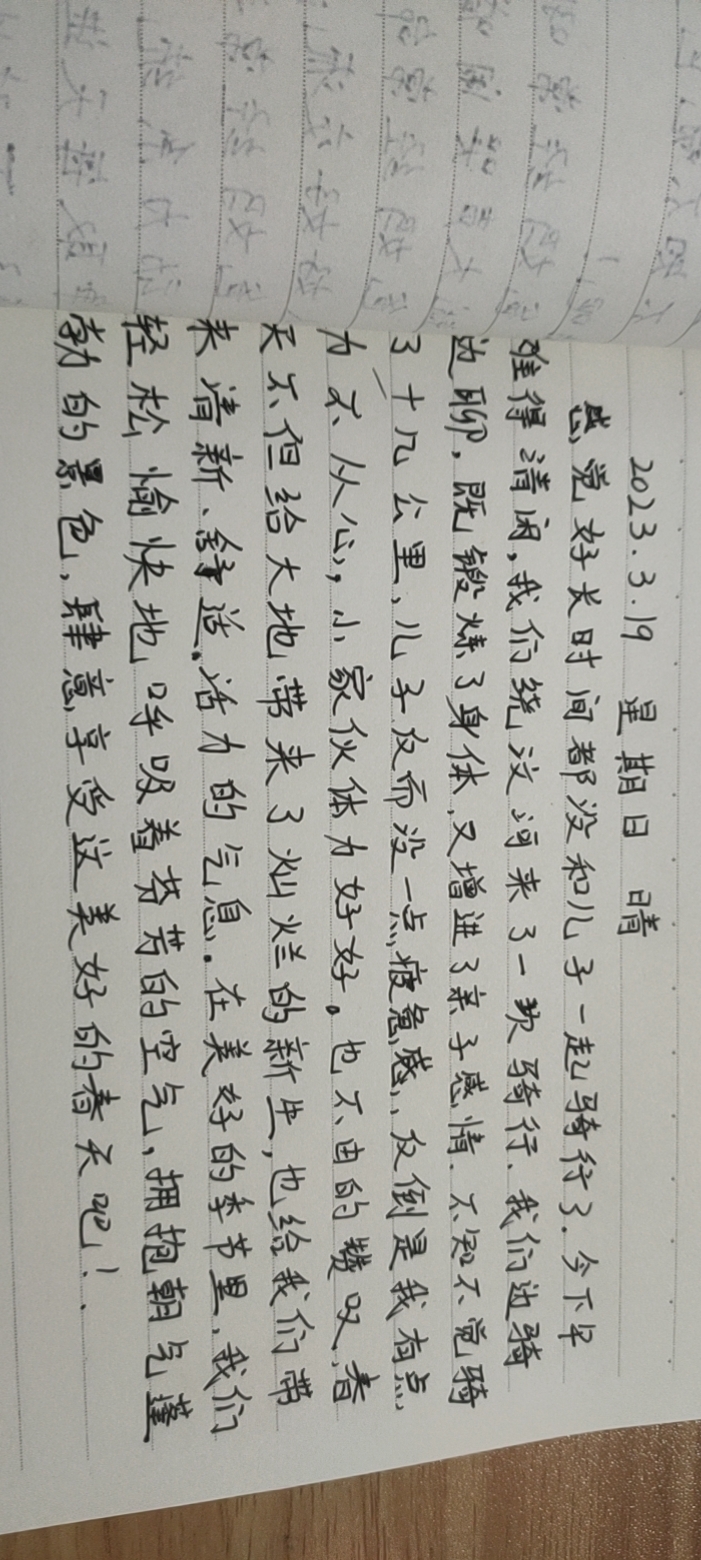 2023.3.19 星期日 晴
感觉好长时间都没和儿子一起骑行了.今下午
难得清闲,我们绕汶河来了一次骑行.我们边骑
边聊,既锻炼了身体,又增进了亲子感情.不知不觉骑
了十几公里,儿子反而没一点疲惫感,反倒是我有点
力不从心,小家伙体力好好。也不由的赞叹,春
天不但给大地带来了灿烂的新生,也给我们带
来清新、舒适.活力的气息.在美好的季节里,我们
轻松愉快地呼吸着芬芳的空气,拥抱朝气蓬
勃的景色,肆意享受这美好的春天吧!